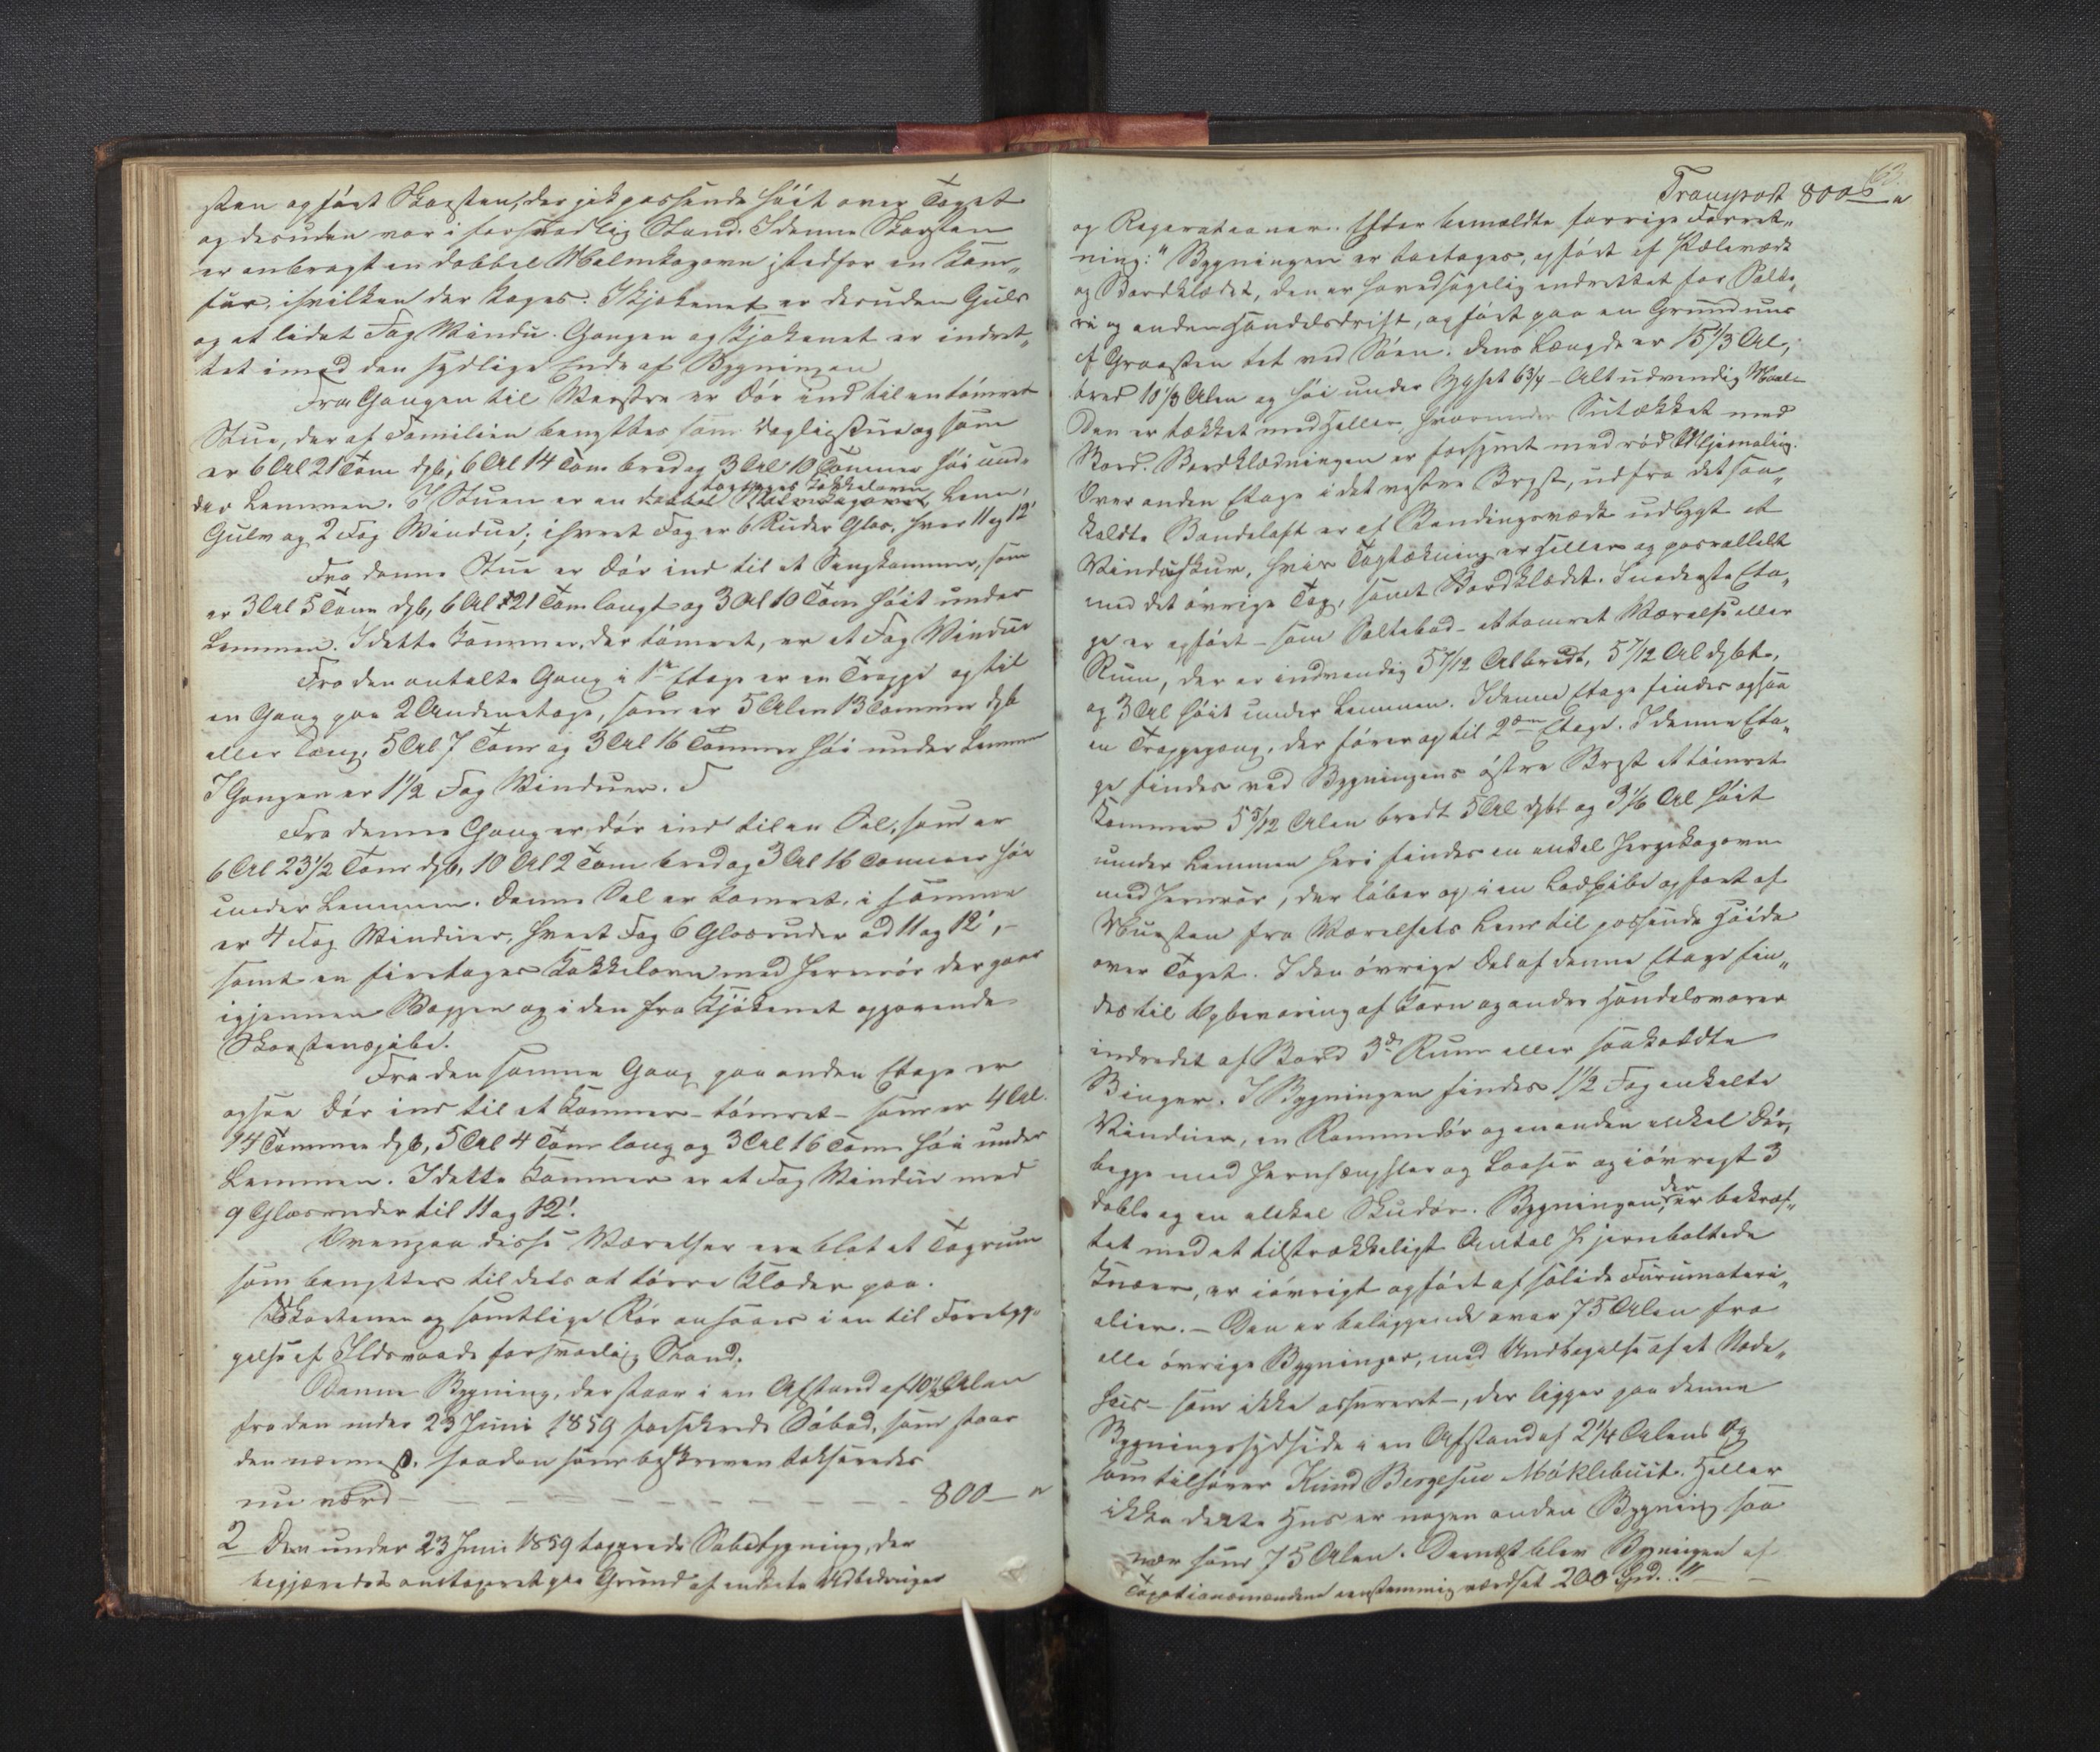 sten opført Skorsten, der gik passende høit over Taget
og desuden var i forsvarlig Stand. I denne Skorsten
er anbragt en dobbel Malmkogovn istedfor en Kom„
fur, i hvilken der koges. I Kjøkenet er desuden Gulv
og et lidet Fag Vindu. Gangen og Kjøkenet er indret„
tet imod den sydlige Ende af Bygningen
Fra Gangen til Venstre er Dør ind til en tømret
Stue, der af Familien benyttes som Dagligstue og som
er 6 Al 21 Tom dyb, 6 Al 14 Tom bred og 3 Al 10 Tommer høi un„
der Lemmen. I Stuen er en Kakkelovn Lem,
Gulv og 2 Fag Vinduer; i hvert Fag er 6 Ruder Glas, hver 11 og 12'
Fra denne Stue er Dør ind til et Sengkammer, som
er 3 Al 5 Tom dyb, 6 Al 21 Tom langt og 3 Al 10 Tom høit under
Lemmen. I dette Kammer, der tømret, er et Fag Vindue
Fra den omtalte Gang i 1ste Etage er en Trappe op til
en Gang paa 2 Anden etage, som er 5 Alen 13 Tommer dyb
eller lang, 5 Al 7 Tom og 3 Al 16 Tommer høi under Lemmen
I Gangen er 1½ Fag Vinduer.
Fra denne Gang er dør ind til en Sal, som er
6 Al 23½ Tom dyb, 10 Al 2 Tom bred og 3 Al 16 Tommer høi
under Lemmen. Denne Sal er tømret, i samme
er 4 Fag Vinduer, hvert Fag 6 Glasruder ad 11 og 12',–
samt en firetages Kakkelovn med Jernrør der gaar
igjennem Væggen og i den fra Kjøkenet opgaaende
Skorstenspibe.
Fra den samme Gang paa anden Etage er
ogsaa Dør ind til et Kammer – tømret – som er 4 Al.
14 Tommer dyb, 5 Al 4 Tom lang og 3 Al 16 Tom høi under
Lemmen. I dette Kammer er et Fag Vindue med
9 Glasruder til 11 og 12'.
Ovenpaa disse Værelser er blot et Tagrum
som benyttes til dels at tørre Klæder paa.
Skorstenen og samtlige Rør ansaaes i en til Forebyg„
gelse af Ildsvaade forsvarlig Stand.
Denne Bygning, der staar i en Afstand af 10½ Alen
fra den under 23 Juni 1859 forsikrede Søbod, som staar
den nærmest, saadan som beskreven takseredes
nu værd – – – – – – – – – 800 – "
2 Den under 23 Juni 1859 taxerede Søbodbygning, der
begjæredes omtaxeret paa Grund af endeele Udbedringer
63.
Transport 800 – "
og Reparationer. Efter bemældte forrige Forret„
ning: "Bygningen er toetages, opført af Stolværk
og Bordklædt, den er hovedsagelig indrettet for Salte„
ri og anden Handelsdrift, opført paa en Grundmur
af Graasten tet ved Søen. Dens Længde er 15⅓ Al,
bred 10⅓ Alen og høi under Gesimset 6¾ – Alt udvendig Maal.
Den er tækket med Heller, hvorunder Sutækket med
Bord. Bordklædningen er forsynet med rød Oljemaling.
Over anden Etage i det vestre Bryst, ud fra det saa„
kaldte Bandeloft er af Bindingsværk udbygt et
Vindeskur, hvis Tagtækning er Heller og parrallelt
med det øvrige Tag, samt Bordklædt. I nederste Eta„
ge er opført – som Saltebod – et tømret Værelse eller
Rum, der er indvendig 5 7/12 Al bredt, 5 7/12 Al dybt,
og 3 Al høit under Lemmen. I denne Etage findes ogsaa
en Trappegang, der fører op til 2den Etage. I denne Eta„
ge findes ved Bygningens østre Bryst et tømret
Kammer 5 5/12 Alen bredt 5 Al dybt og 3⅙ Al høit
under Lemmen heri findes en enkel Jernkogovn
med Jernrør, der løber op i en Lodpibe opført af
Mursten fra Værelsets Lem til passende Høide
over Taget. I den øvrige Del af denne Etage fin„
des til Opbevaring af Korn og andre Handelsvarer
indredet af Bord 3de Rum eller saakaldte
Binger. I Bygningen findes 1½ Fag enkelte
Vinduer, en Rammedør og en anden enkel Dør,
begge med Jernhængsler og Laaser og iøvrigt 3
doble og en enkel Skudør. Bygningen, der er bekræf„
tet med et tilstrækkeligt Antal Jernboltede
Knæer, er iøvrigt opført af solide Furumateri„
alier. – Den er beliggende over 75 Alen fra
alle øvrige Bygninger, med Undtagelse af et Nøde„
huus – som ikke assureret –, der ligger paa denne
Bygnings sydside i en Afstand af 2¼ Alen og
som tilhører Knud Bergesen Møklebust. Heller
ikke dette Hus er nogen anden Bygning saa
nær som 75 Alen. Dernæst blev Bygningen af
Taxationsmændene eenstemmig værdsat 200 Spd.!"